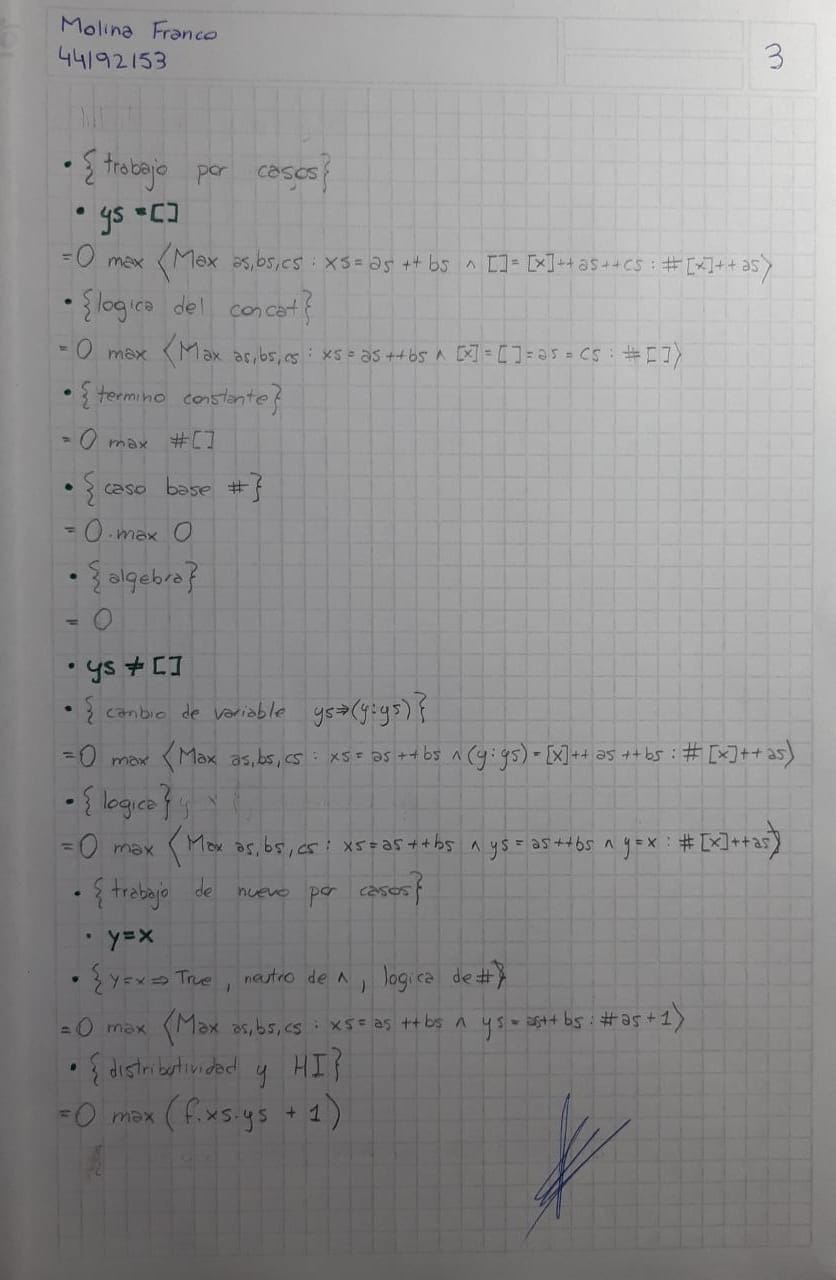 Molina Franco
44192153
3
• {trabajo por casos}
• ys = []
= 0 max ⟨Max as,bs,cs : xs = as ++ bs ∧ [] = [x] ++ as ++ cs : # [x] ++ as⟩
• {logica del concat}
= 0 max ⟨Max as,bs,cs : xs = as ++ bs ∧ [x] = [] = as = cs : # []⟩
• {termino constante}
= 0 max #[]
• {caso base #}
= 0 max 0
• {algebra}
= 0
• ys ≠ []
• {cambio de variable ys⇒(y:ys)}
= 0 max ⟨Max as,bs,cs : xs = as ++ bs ∧ (y:ys) = [x] ++ as ++ bs : # [x] ++ as⟩
• {logica}
= 0 max ⟨Max as,bs,cs : xs = as ++ bs ∧ ys = as ++ bs ∧ y = x : # [x] ++ as⟩
• {trabajo de nuevo por casos}
• y = x
• {y = x ⇒ True, neutro de ∧, logica de #}
= 0 max ⟨Max as,bs,cs : xs = as ++ bs ∧ ys = as ++ bs : # as + 1⟩
• {distributividad y HI}
= 0 max (f.xs.ys + 1)